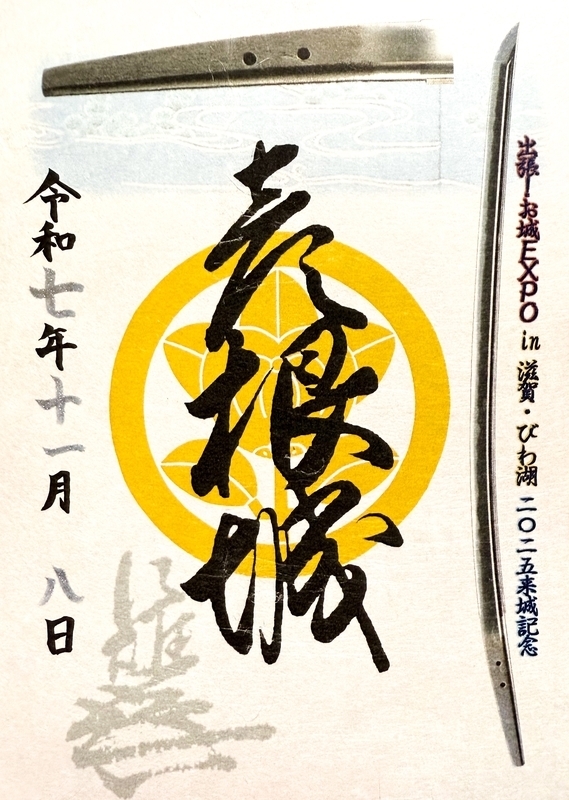 出張！お城EXPO in 滋賀・びわ湖 二〇二五来城記念
彦根城
令和七年十一月 八日